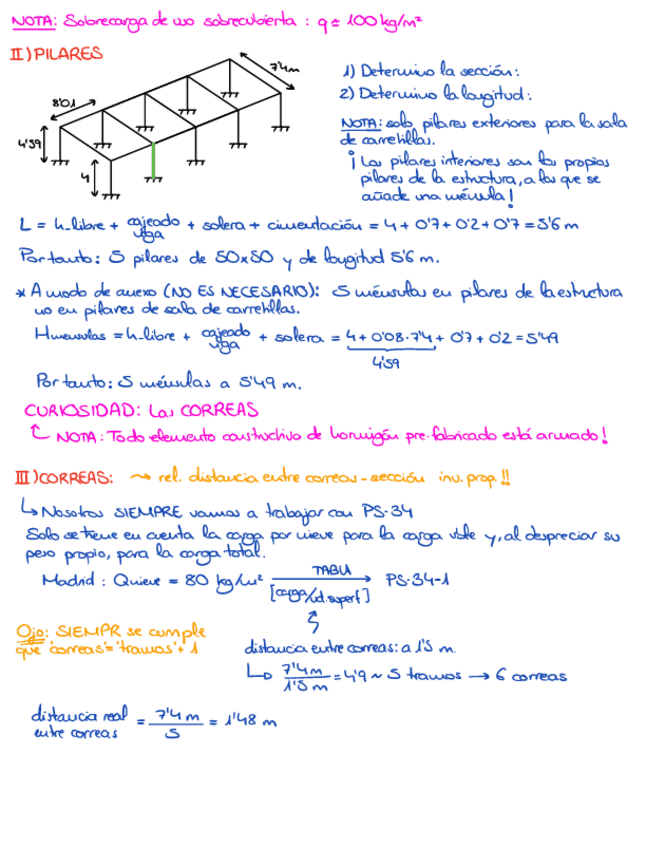 NOTA: Sobrecarga de uso sobrecubierta : q = 100 kg/m²
II) PILARES
7'4m
8'01
4'59
4
1) Determino la sección:
2) Determino la longitud:
NOTA: solo pilares exteriores para la sala
de carretillas.
¡ Los pilares interiores son los propios
pilares de la estructura, a los que se
añade una ménsula !
L = h-libre + cajeado viga + solera + cimentación = 4 + 0'7 + 0'2 + 0'7 = 5'6 m
Por tanto: 5 pilares de 50x50 y de longitud 5'6 m.
* A modo de anexo (NO ES NECESARIO): 5 ménsulas en pilares de la estructura
no en pilares de sala de carretillas.
Hménsulas = h-libre + cajeado viga + solera = 4 + 0'08·7'4 + 0'7 + 0'2 = 5'49
4'59
Por tanto: 5 ménsulas a 5'49 m.
CURIOSIDAD: Las CORREAS
NOTA: Todo elemento constructivo de hormigón pre-fabricado está armado!
III) CORREAS: → rel. distancia entre correas - sección inv. prop !!
↳ Nosotros SIEMPRE vamos a trabajar con PS-34
Solo se tiene en cuenta la carga por nieve para la carga viva y, al despreciar su
peso propio, para la carga total.
Madrid : Qnieve = 80 kg/m² TABLA → PS-34-1
[carga/ud. superf]
Ojo: SIEMPR se cumple
que 'correas' = 'tramos' + 1
distancia entre correas: a 1'5 m.
↳ 7'4 m / 1'5 m = 4'9 ~ 5 tramos → 6 correas
distancia real entre correas = 7'4 m / 5 = 1'48 m